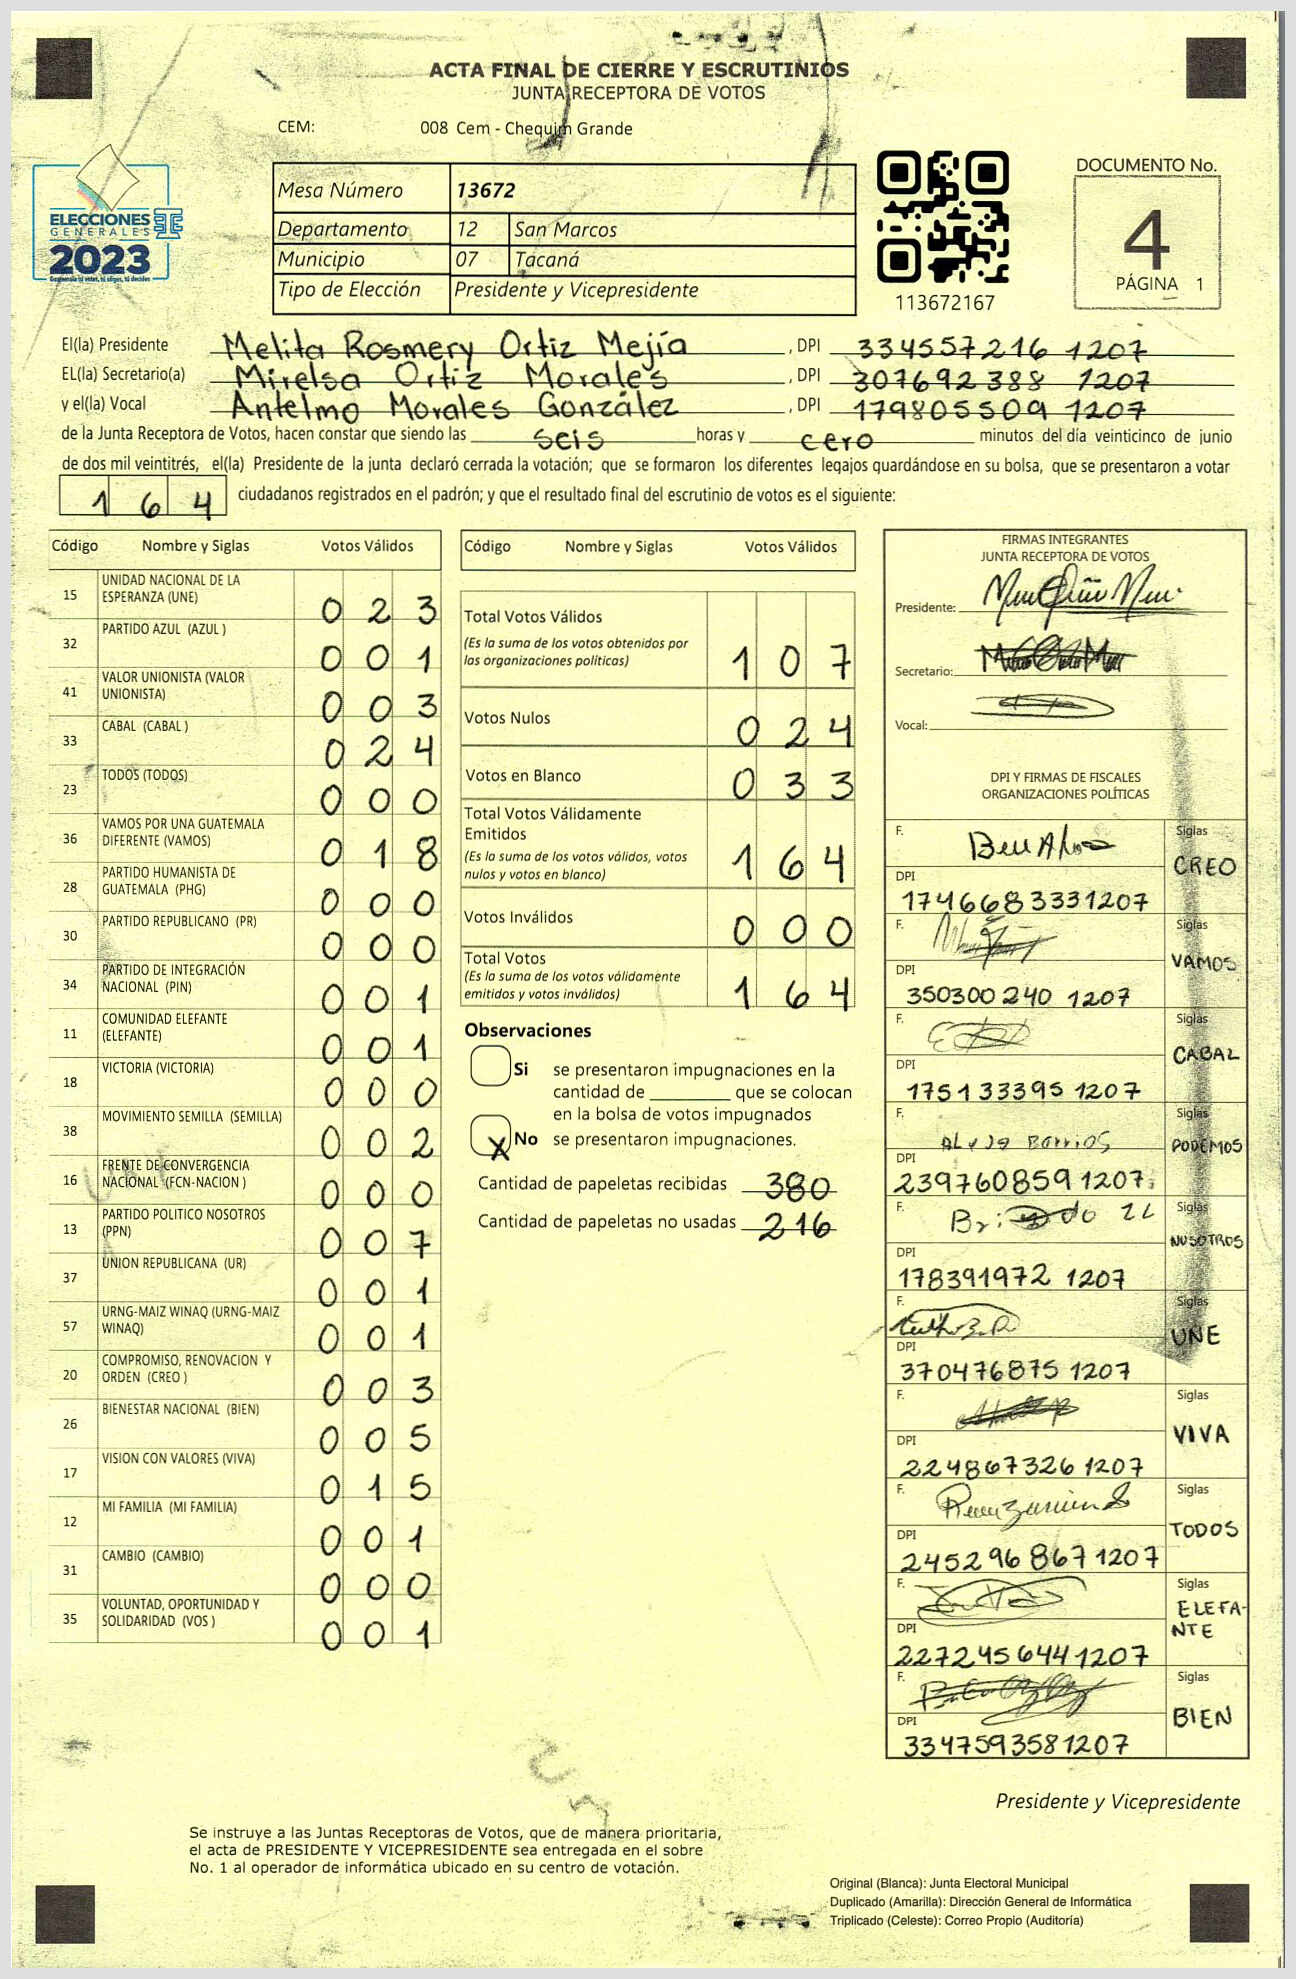 ACTA FINAL DE CIERRE Y ESCRUTINIOS
JUNTA RECEPTORA DE VOTOS
CEM: 008 Cem - Chequim Grande
ELECCIONES
GENERALES
2023
Mesa Número 13672
Departamento 12 San Marcos
Municipio 07 Tacaná
Tipo de Elección Presidente y Vicepresidente
113672167
DOCUMENTO No.
4
PÁGINA 1
El(la) Presidente Melita Rosmery Ortiz Mejía , DPI 334557216 1207
EL(la) Secretario(a) Mirelsa Ortiz Morales , DPI 307692388 1207
y el(la) Vocal Antelmo Morales González , DPI 179805509 1207
de la Junta Receptora de Votos, hacen constar que siendo las seis horas y cero minutos del día veinticinco de junio
de dos mil veintitrés, el(la) Presidente de la junta declaró cerrada la votación; que se formaron los diferentes legajos guardándose en su bolsa, que se presentaron a votar
164 ciudadanos registrados en el padrón; y que el resultado final del escrutinio de votos es el siguiente:
Código Nombre y Siglas Votos Válidos
15 UNIDAD NACIONAL DE LA ESPERANZA (UNE) 023
32 PARTIDO AZUL (AZUL ) 001
41 VALOR UNIONISTA (VALOR UNIONISTA) 003
33 CABAL (CABAL ) 024
23 TODOS (TODOS) 000
36 VAMOS POR UNA GUATEMALA DIFERENTE (VAMOS) 018
28 PARTIDO HUMANISTA DE GUATEMALA (PHG) 000
30 PARTIDO REPUBLICANO (PR) 000
34 PARTIDO DE INTEGRACIÓN NACIONAL (PIN) 001
11 COMUNIDAD ELEFANTE (ELEFANTE) 001
18 VICTORIA (VICTORIA) 000
38 MOVIMIENTO SEMILLA (SEMILLA) 002
16 FRENTE DE CONVERGENCIA NACIONAL (FCN-NACION ) 000
13 PARTIDO POLITICO NOSOTROS (PPN) 007
37 UNION REPUBLICANA (UR) 001
57 URNG-MAIZ WINAQ (URNG-MAIZ WINAQ) 001
20 COMPROMISO, RENOVACION Y ORDEN (CREO ) 003
26 BIENESTAR NACIONAL (BIEN) 005
17 VISION CON VALORES (VIVA) 015
12 MI FAMILIA (MI FAMILIA) 001
31 CAMBIO (CAMBIO) 000
35 VOLUNTAD, OPORTUNIDAD Y SOLIDARIDAD (VOS ) 001
Código Nombre y Siglas Votos Válidos
Total Votos Válidos
(Es la suma de los votos obtenidos por
las organizaciones políticas) 107
Votos Nulos 024
Votos en Blanco 033
Total Votos Válidamente
Emitidos
(Es la suma de los votos válidos, votos
nulos y votos en blanco) 164
Votos Inválidos 000
Total Votos
(Es la suma de los votos válidamente
emitidos y votos inválidos) 164
Observaciones
Si se presentaron impugnaciones en la
cantidad de ________ que se colocan
en la bolsa de votos impugnados
X No se presentaron impugnaciones.
Cantidad de papeletas recibidas 380
Cantidad de papeletas no usadas 216
FIRMAS INTEGRANTES
JUNTA RECEPTORA DE VOTOS
Presidente:
Secretario:
Vocal:
DPI Y FIRMAS DE FISCALES
ORGANIZACIONES POLÍTICAS
F. Siglas
CREO
DPI
1746683331207
F. Siglas
VAMOS
DPI
350300240 1207
F. Siglas
CABAL
DPI
175133395 1207
F. Barrios Siglas
PODEMOS
DPI
239760859 1207
F. Siglas
NOSOTROS
DPI
178391972 1207
F. Siglas
UNE
DPI
370476875 1207
F. Siglas
VIVA
DPI
224867326 1207
F. Siglas
TODOS
DPI
245296867 1207
F. Siglas
ELEFA-
NTE
DPI
2272456441207
F. Siglas
BIEN
DPI
3347593581207
Presidente y Vicepresidente
Se instruye a las Juntas Receptoras de Votos, que de manera prioritaria,
el acta de PRESIDENTE Y VICEPRESIDENTE sea entregada en el sobre
No. 1 al operador de informática ubicado en su centro de votación.
Original (Blanca): Junta Electoral Municipal
Duplicado (Amarilla): Dirección General de Informática
Triplicado (Celeste): Correo Propio (Auditoría)